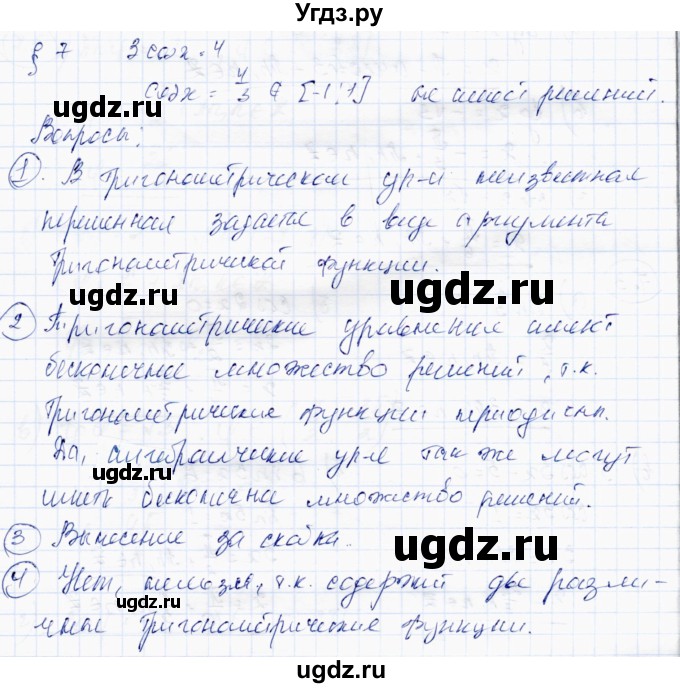 Угдз.ру
§ 7 3 cos x = 4
cos x = 4/3 ∉ [-1; 1] не имеет решений.
Вопросы:
1. В тригонометрическом ур-и неизвестная
переменная задается в виде аргумента
тригонометрической функции.
ugdz.ru ugdz.ru
2 Тригонометрические уравнения имеют
бесконечные множество решений, т.к.
тригонометрические функции периодичн.
Да, алгебраические ур-я так же могут
ugdz.ru
иметь бесконечна множество решений.
3 Вынесение за скобки.
ugdz.ru
4 Нет, нельзя, т.к. содержит две разли-
ugdz.ru
чные тригонометрические функции.
ugdz.ru ugdz.ru